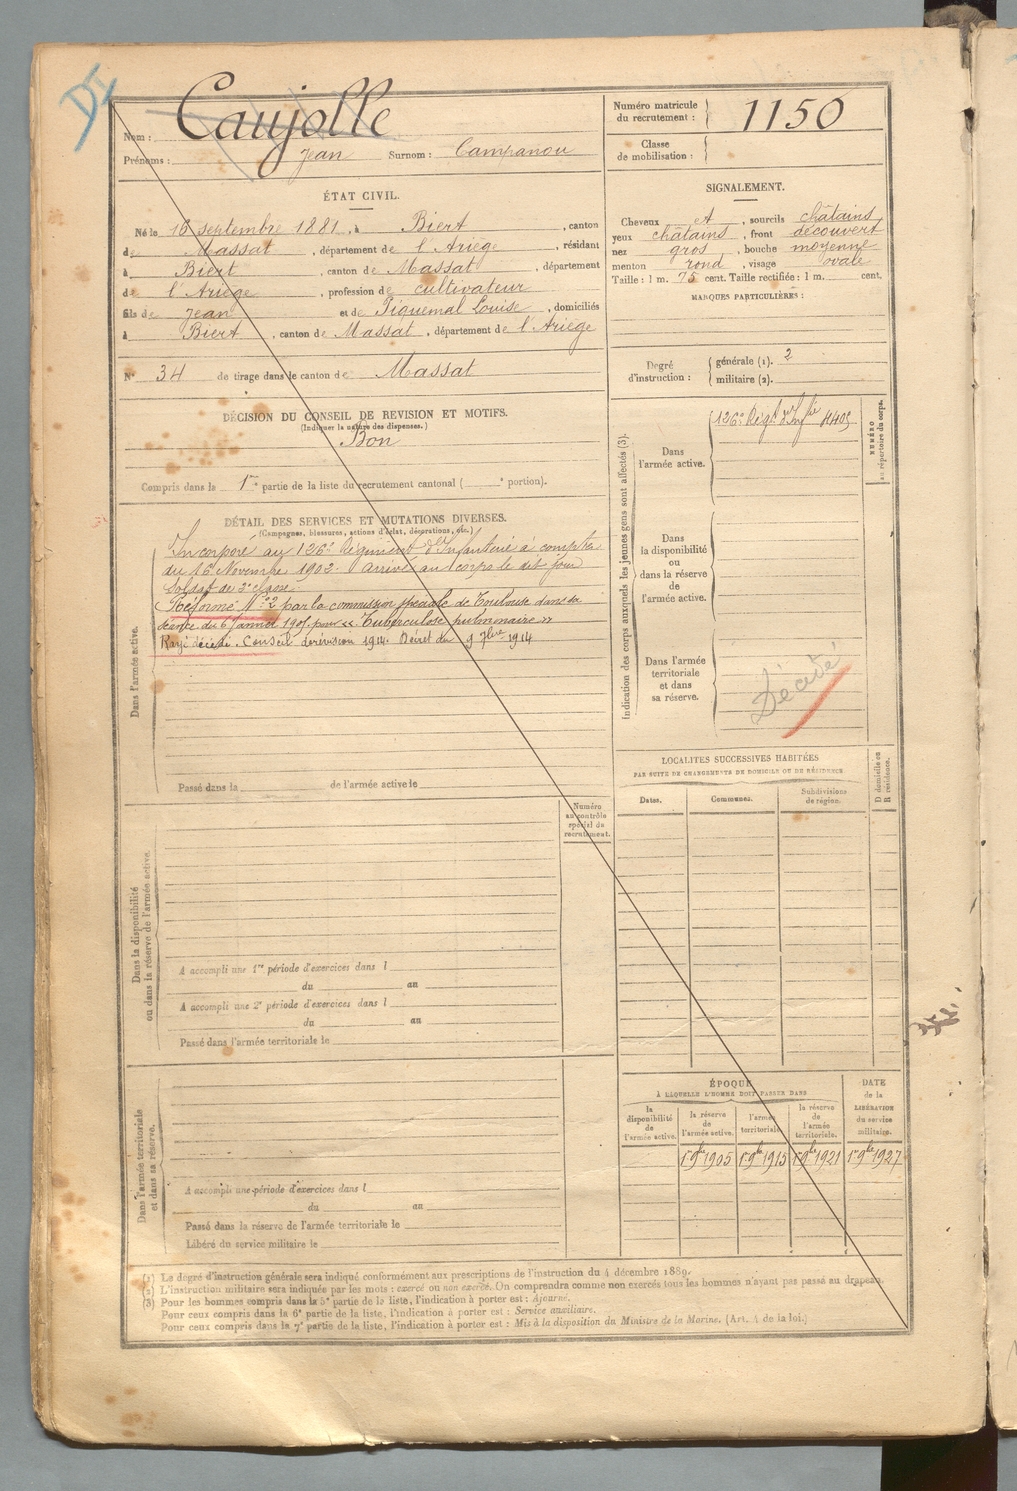 DI
Nom : Caujolle
Prénoms : Jean Surnom : Campanou
Numéro matricule du recrutement : 1150
Classe de mobilisation :
ÉTAT CIVIL.
Né le 16 septembre 1881, à Biert, canton
de Massat, département de l'Ariège, résidant
à Biert, canton de Massat, département
de l'Ariège, profession de cultivateur
fils de Jean et de Piquemal Louise, domiciliés
à Biert, canton de Massat, département de l'Ariège
N° 34 de tirage dans le canton de Massat
SIGNALEMENT.
Cheveux et, sourcils châtains
yeux châtains, front découvert
nez gros, bouche moyenne
menton rond, visage ovale
Taille : 1 m. 75 cent. Taille rectifiée : 1 m. cent.
MARQUES PARTICULIÈRES :
Degré d'instruction : générale (1). 2
militaire (2).
DÉCISION DU CONSEIL DE REVISION ET MOTIFS.
(Indiquer la nature des dispenses.)
Bon
Compris dans la 1re partie de la liste du recrutement cantonal ( e portion).
DÉTAIL DES SERVICES ET MUTATIONS DIVERSES.
(Campagnes, blessures, actions d'éclat, décorations, etc.)
Dans l'armée active.
Incorporé au 126e Régiment d'Infanterie à compter
du 16 Novembre 1902. Arrivé au corps le dit jour
Soldat de 2e classe.
Réformé N° 2 par la commission spéciale de Toulouse dans sa
séance du 6 pour « Tuberculose pulmonaire »
Rayé décédé. Conseil de révision 1914. Décret du 9 7bre 1914
Passé dans la de l'armée active le
Indication des corps auxquels les jeunes gens sont affectés (3).
NUMÉRO au répertoire du corps.
Dans l'armée active.
126e Régt d'Infie
Dans la disponibilité ou dans la réserve de l'armée active.
Dans l'armée territoriale et dans sa réserve.
Décédé
LOCALITÉS SUCCESSIVES HABITÉES
PAR SUITE DE CHANGEMENTS DE DOMICILE OU DE RÉSIDENCE
Dates. Communes. Subdivisions de région. D domicile ou R résidence.
Numéro au contrôle spécial du recrutement.
Dans la disponibilité ou dans la réserve de l'armée active.
A accompli une 1re période d'exercices dans l
du au
A accompli une 2e période d'exercices dans l
du au
Passé dans l'armée territoriale le
Dans l'armée territoriale et dans sa réserve.
A accompli une période d'exercices dans l
du au
Passé dans la réserve de l'armée territoriale le
Libéré du service militaire le
ÉPOQUE
À LAQUELLE L'HOMME DOIT PASSER DANS
la disponibilité de l'armée active. la réserve de l'armée active. l'armée territoriale. la réserve de l'armée territoriale. DATE de la LIBÉRATION du service militaire.
1er 9bre 1905 1er 9bre 1915 1er 9bre 1921 1er 9bre 1927
(1) Le degré d'instruction générale sera indiqué conformément aux prescriptions de l'instruction du 4 décembre 1889.
(2) L'instruction militaire sera indiquée par les mots : exercé ou non exercé. On comprendra comme non exercés tous les hommes n'ayant pas passé au drapeau.
(3) Pour les hommes compris dans la 5e partie de la liste, l'indication à porter est : Ajourné.
Pour ceux compris dans la 6e partie de la liste, l'indication à porter est : Service auxiliaire.
Pour ceux compris dans la 7e partie de la liste, l'indication à porter est : Mis à la disposition du Ministre de la Marine. (Art. 4 de la loi.)